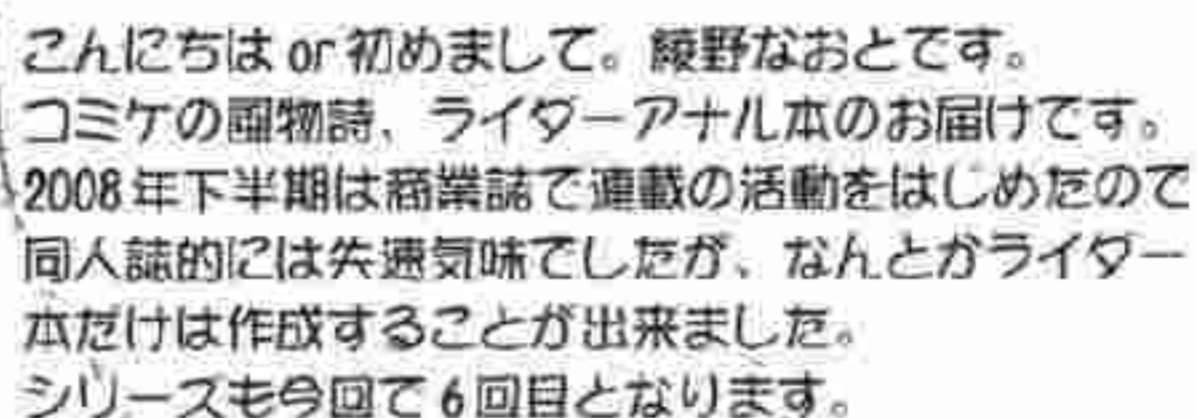 こんにちは or 初めまして。綾野なおとです。
コミケの風物詩、ライダーアナル本のお届けです。
2008年下半期は商業誌で連載の活動をはじめたので
同人誌的には失速気味でしたが、なんとかライダー
本だけは作成することが出来ました。
シリーズも今回で6回目となります。